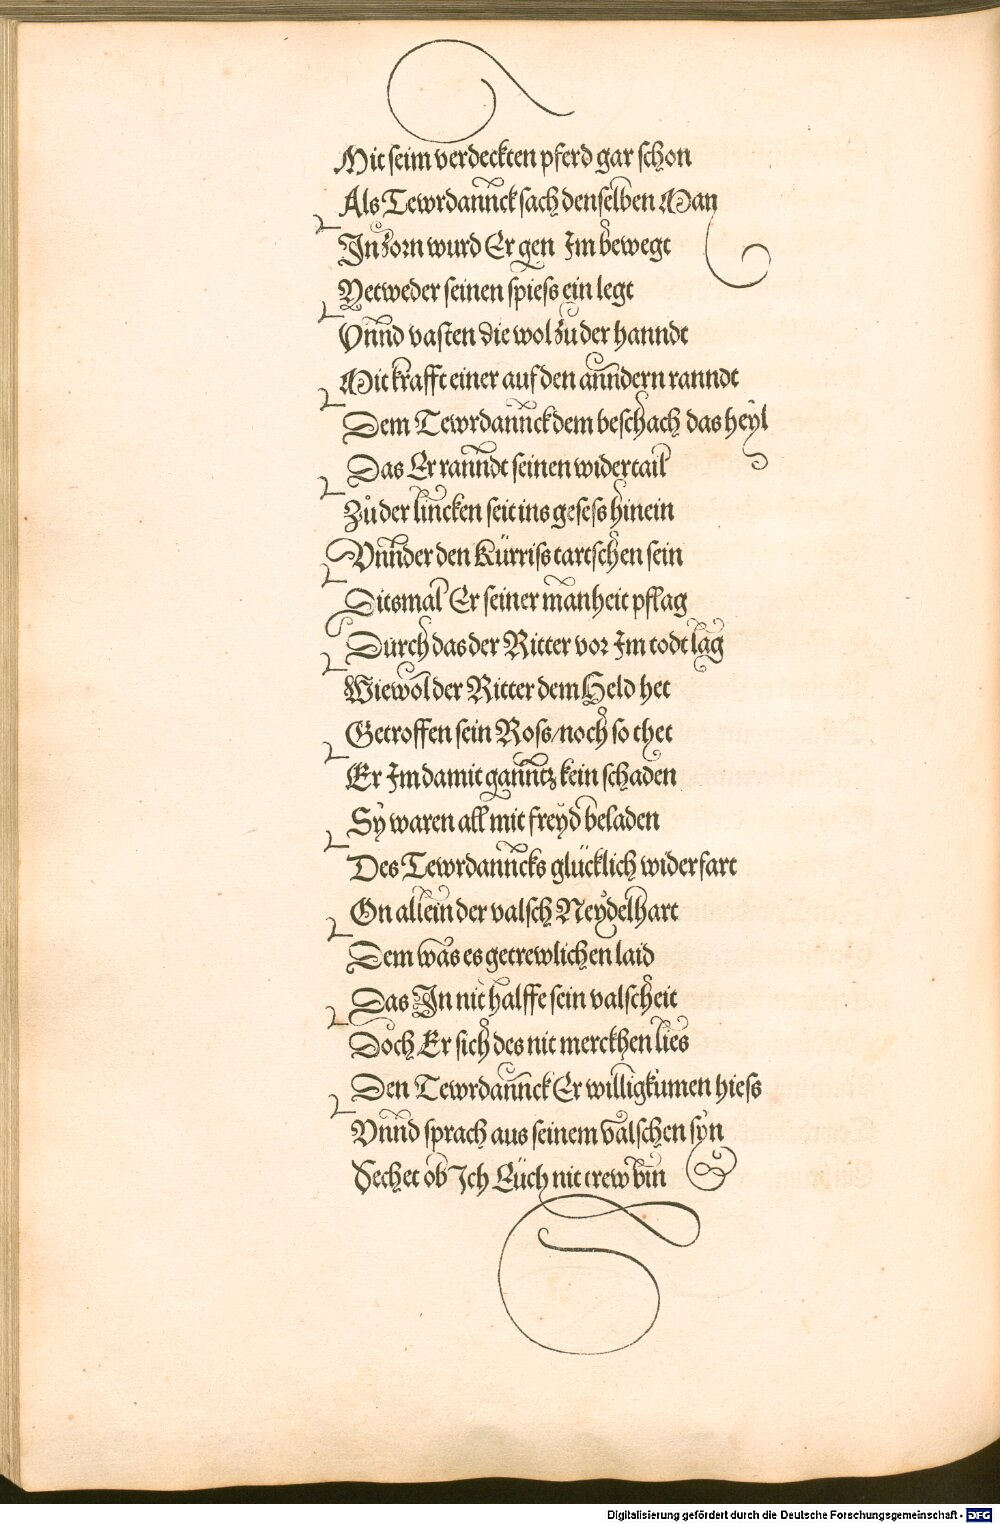 Mit seim verdeckten pferd gar schon
Als Tewrdannck sach denselben Man
In zorn wurd Er gen Im bewegt
Yetweder seinen spiess ein legt
Vnnd vasten die wol zu der hanndt
Mit krafft einer auf den anndern ranndt
Dem Tewrdannck dem beschach das heyl
Das Er ranndt seinen widertail
Zů der lincken seit ins gesess hinein
Vnnder den Kürriss tartschen sein
Ditsmal Er seiner manheit pflag
Durch das der Ritter vor Im todt lag
Wiewol der Ritter dem Held het
Getroffen sein Ross/noch so thet
Er Im damit ganntz kein schaden
Sy waren all mit freyd beladen
Des Tewrdanncks glücklich widerfart
On allein der valsch Neydelhart
Dem was es getrewlichen laid
Das In nit halffe sein valscheit
Doch Er sich des nit merckhen lies
Den Tewrdannck Er willigkumen hiess
Vnnd sprach aus seinem valschen syn
Sechet ob Ich Eüch nit trew bin
Digitalisierung gefördert durch die Deutsche Forschungsgemeinschaft - DFG